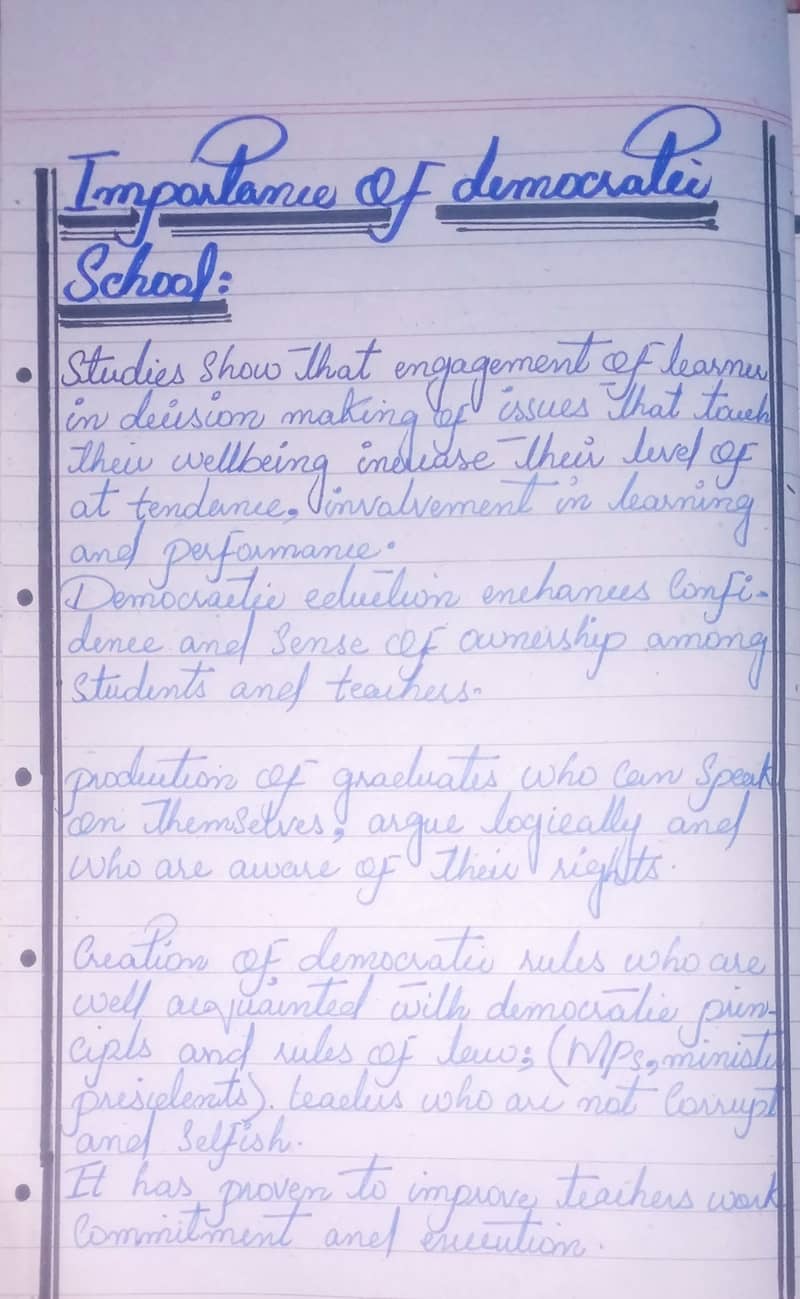 Importance Of democratic
School:
Studies Show that engagement of learner
in decision making of issues that touch
their wellbeing increase their level of
at tendance, involvement in learning
and performance.
Democractic eduction enchances Confi-
dence and Sense of ownership among
Students and teachers.
production of graduates who can Speak
on themselves, argue logically and
who are aware of their rights.
Creation of democratic rules who are
well acquainted with democratic prin-
cipls and rules of law; (MPs, ministe
presidents). leaders who are not Corrupt
and Selfish.
It has proven to improve teachers work
Commitment and execution.